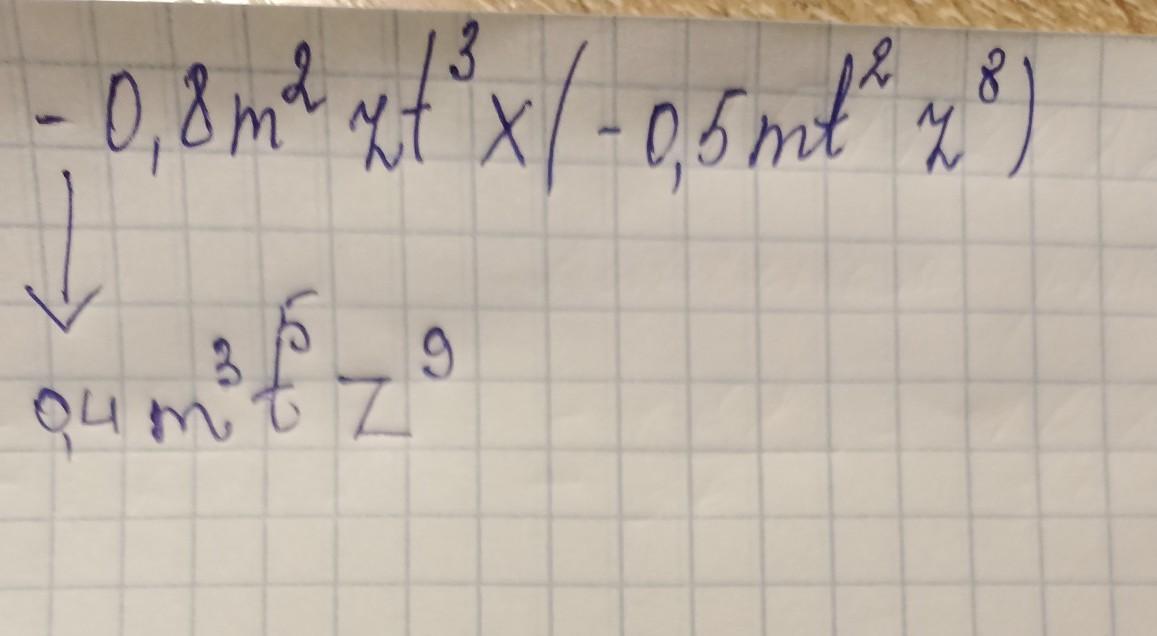 - 0,8m² zt³ x (-0,5mt² z⁸)
0,4 m³ t⁵ z⁹